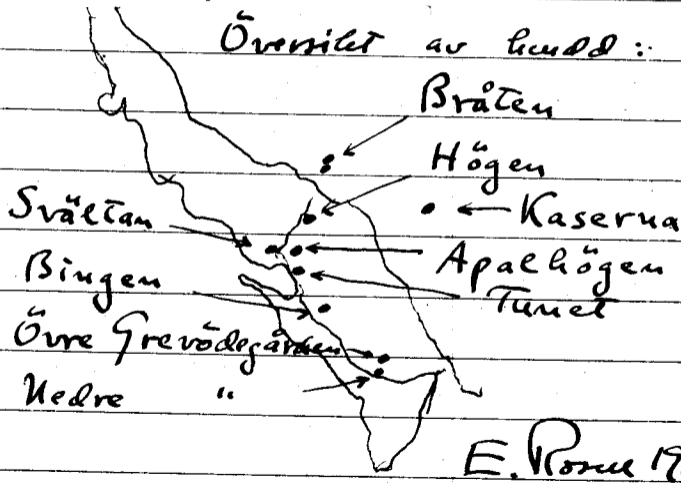 Översikt av
Bråten
Högen
Svältan
Kaserna
Apalhögen
Bingen
Tunet
Övre Grevödegården
Nedre "
E. Rosen 19